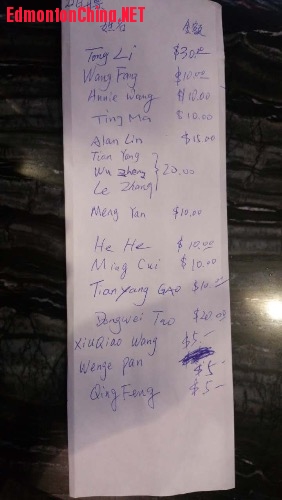 EdmontonChina.NET
姓名 金额
Tong Li $30.00
Wang Fang $10.00
Annie Wang $10.00
Ting Ma $10.00
Alan Lin $15.00
Tian Yong
Wu Zheng 20.00
Le Zhang
Meng Yan $10.00
He He $10.00
Ming Cui $10.00
Tianyang GAO $10.00
Dongwei Tao $20.00
XiuQiao Wang $5-
Wenge Pan $5-
Qing Feng $5-